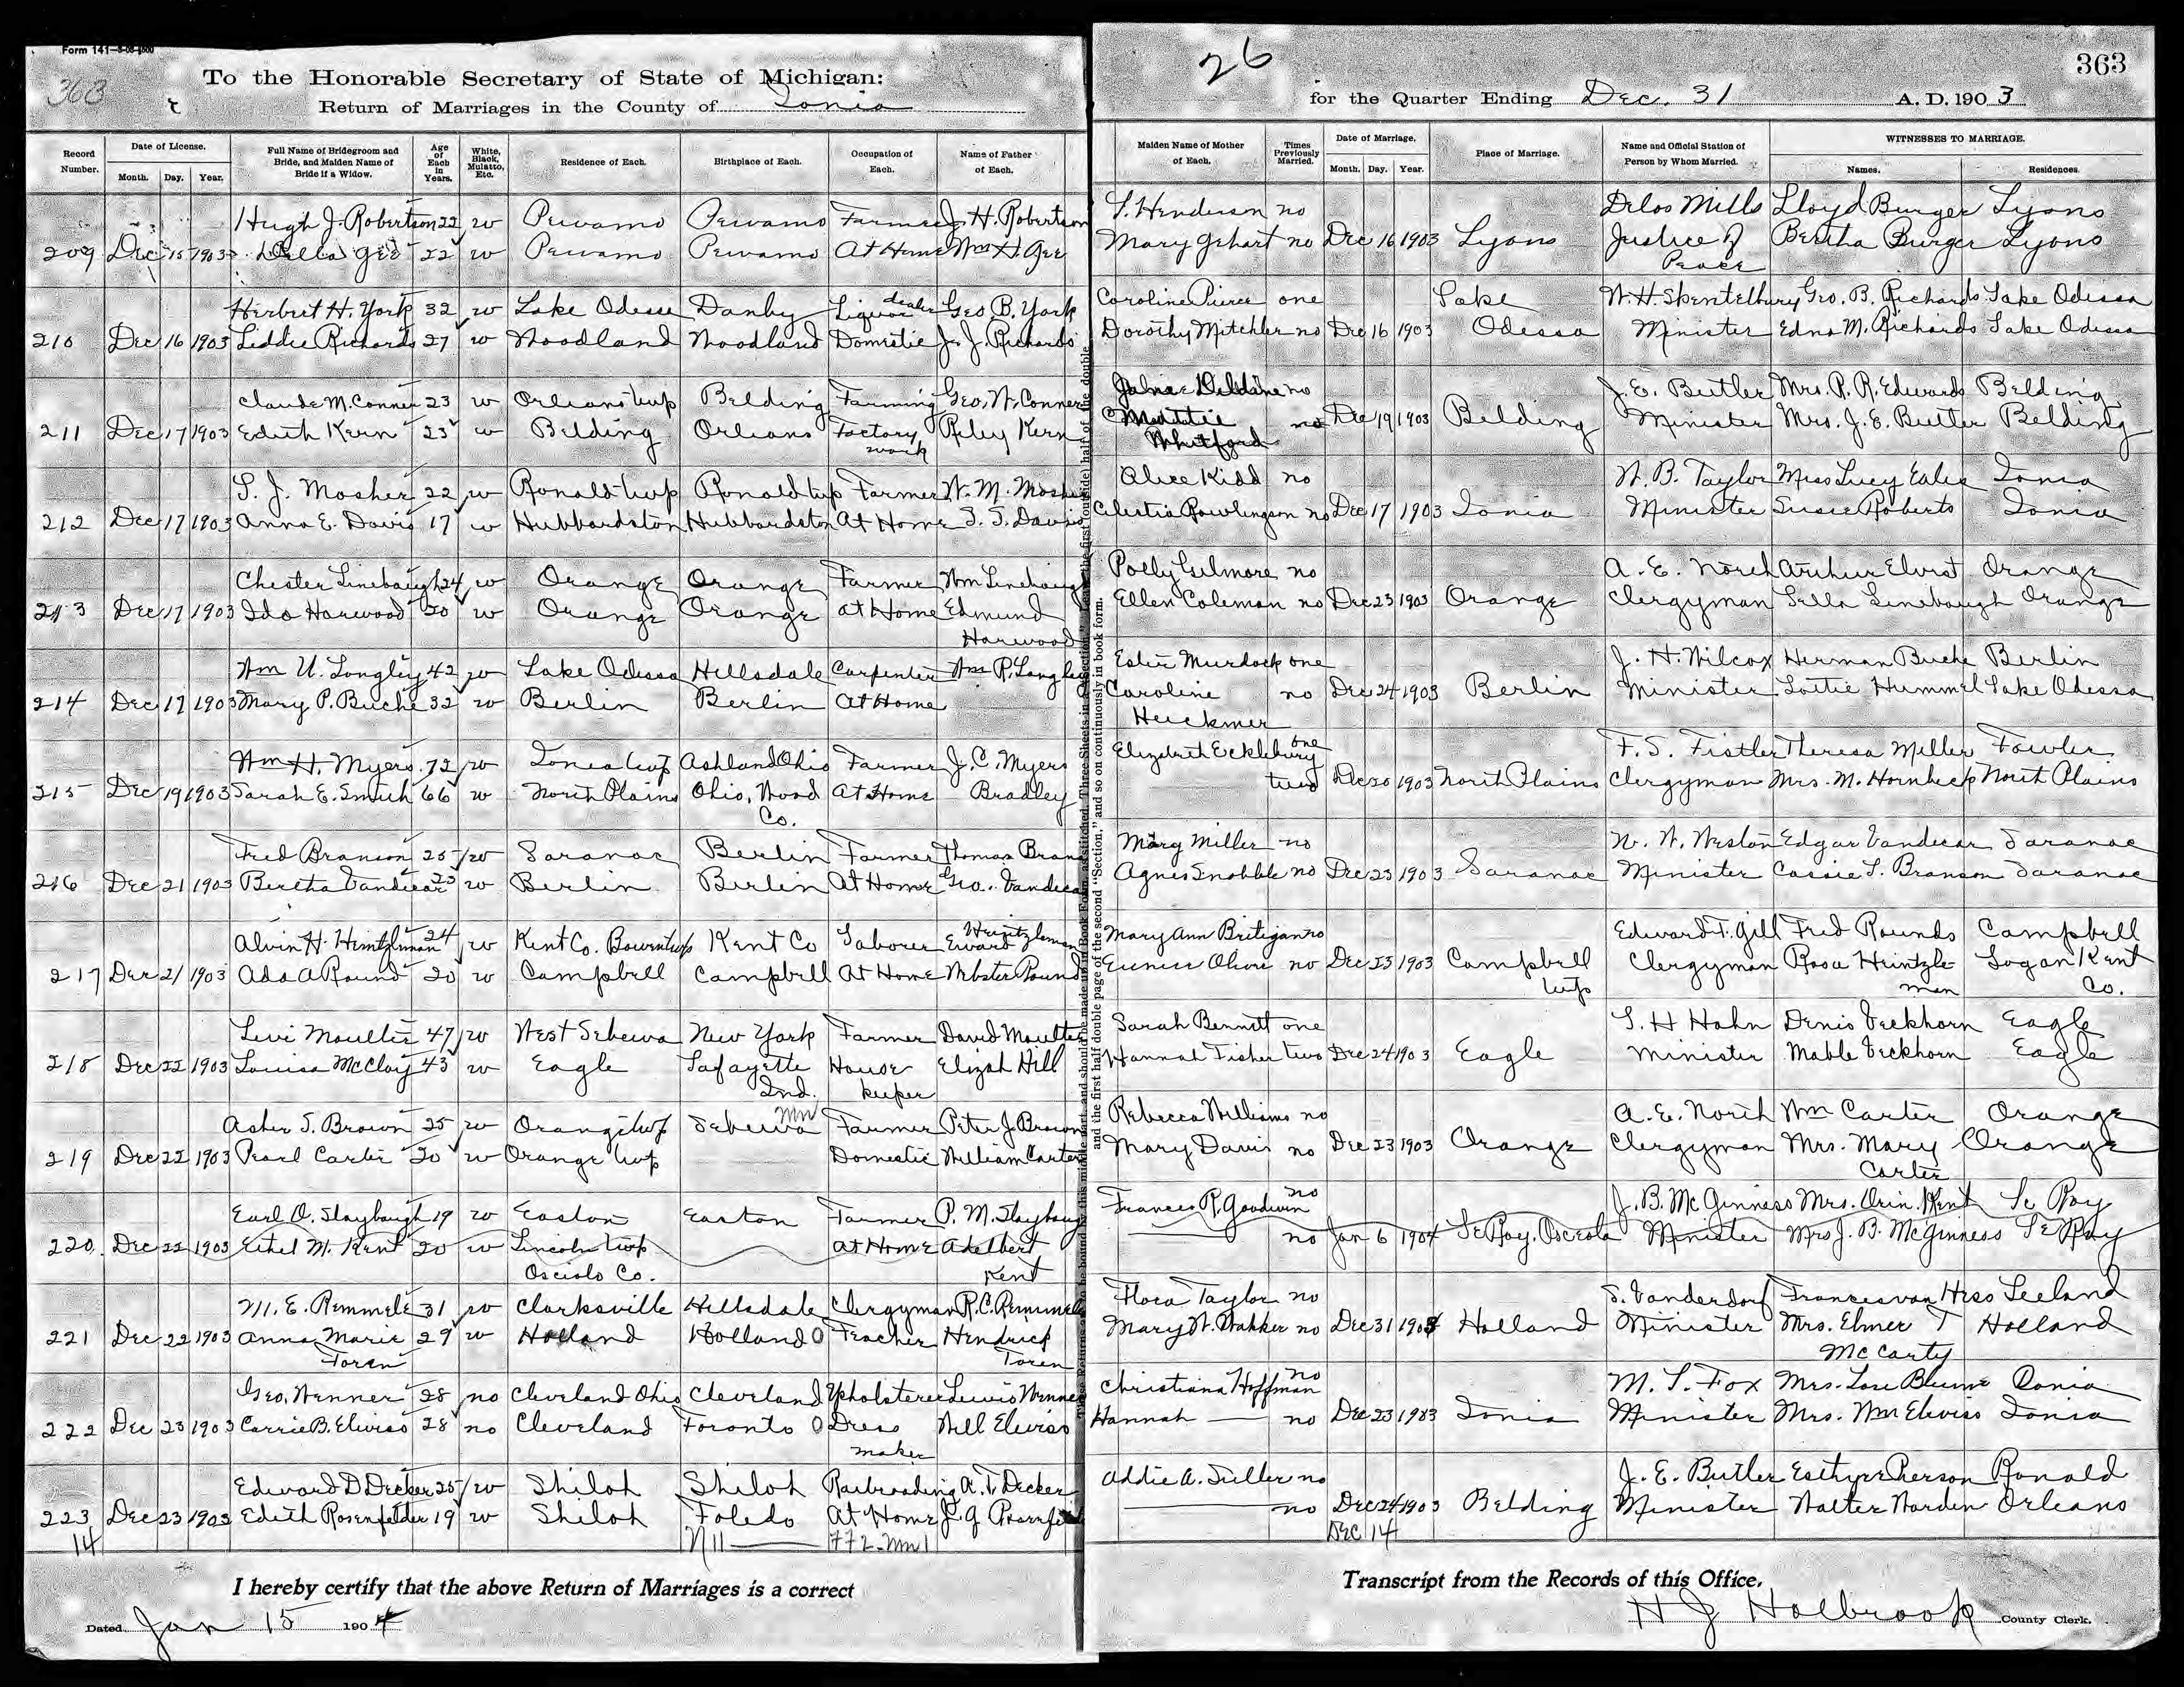 Form 141
363
To the Honorable Secretary of State of Michigan:
Return of Marriages in the County of Ionia
26
363
for the Quarter Ending Dec. 31 A. D. 1903
Record Number. Date of License. Month. Day. Year. Full Name of Bridegroom and Bride, and Maiden Name of Bride if a Widow. Age of Each in Years. White, Black, Mulatto, Etc. Residence of Each. Birthplace of Each. Occupation of Each. Name of Father of Each. Maiden Name of Mother of Each. Times Previously Married. Date of Marriage. Month. Day. Year. Place of Marriage. Name and Official Station of Person by Whom Married. WITNESSES TO MARRIAGE. Names. Residences.
Hugh J. Robertson 22 w Pewamo Pewamo Farmer J. H. Robertson S. Henderson no Delos Mills Lloyd Burger Lyons
209 Dec 15 1903 Della Gee 22 w Pewamo Pewamo At Home Wm H. Gee Mary Gehart no Dec 16 1903 Lyons Justice of Bertha Burger Lyons
Peace
Herbert H. York 32 w Lake Odessa Danby Liquor dealer Geo. B. York Caroline Pierce one Lake Geo. B. Richards Lake Odessa
210 Dec 16 1903 Liddie Richards 27 w Woodland Woodland Domestic J. J. Richards Dorothy Mitchler no Dec 16 1903 Odessa Minister Edna M. Richards Lake Odessa
Claude M. Conner 23 w Orleans twp Belding Farming Geo. W. Conner no J. E. Butler Mrs. P. R. Edwards Belding
211 Dec 17 1903 Edith Kern 23 w Belding Orleans Factory Riley Kern no Dec 19 1903 Belding Minister Mrs. J. E. Butler Belding
work Whitford
S. J. Mosher 22 w Ronald twp Ronald twp Farmer W. M. Mosher Alice Kidd no W. B. Taylor Miss Lucy Eales Ionia
212 Dec 17 1903 Anna E. Davis 17 w Hubbardston Hubbardston At Home S. S. Davis Celestia Rowlingson no Dec 17 1903 Ionia Minister Susie Roberts Ionia
Chester Linebaugh 24 w Orange Orange Farmer Wm Linebaugh Polly Gilmore no A. E. North Arthur Orange
213 Dec 17 1903 Ida Harwood 20 w Orange Orange at Home Edmund Ellen Coleman no Dec 23 1903 Orange Clergyman Lella Linebaugh Orange
Harwood
Wm U. Longley 42 w Lake Odessa Hillsdale Carpenter Wm R. Longley Ester Murdock one J. H. Wilcox Herman Buche Berlin
214 Dec 17 1903 Mary P. Buche 32 w Berlin Berlin At Home Caroline no Dec 24 1903 Berlin Minister Lottie Hummel Lake Odessa
Heickmer
Wm H. Myers 72 w Ionia twp Ashland Ohio Farmer J. C. Myers Elizabeth Eckleburg one F. S. Fistler Theresa Miller Fowler
215 Dec 19 1903 Sarah E. Smith 66 w North Plains Ohio, Wood At Home Bradley two Dec 20 1903 North Plains Clergyman Mrs. M. Hornbeck North Plains
Co.
Fred Branson 25 w Saranac Berlin Farmer Thomas Branson Mary Miller no W. W. Weston Edgar Vandecar Saranac
216 Dec 21 1903 Bertha Vandecar 23 w Berlin Berlin At Home Geo. Vandecar Agnes Snobble no Dec 23 1903 Saranac Minister Cassie L. Branson Saranac
Alvin H. Heintzleman 24 w Kent Co. Bowen twp Kent Co Laborer Heintzleman Mary Ann Britigan no Edward F. Gill Fred Rounds Campbell
217 Dec 21 1903 Ada A Round 20 w Campbell Campbell At Home Webster Round Eunice no Dec 23 1903 Campbell Clergyman Rosa Heintzle- Logan Kent
twp man Co.
Levi Moulter 47 w West Sebewa New York Farmer David Moulter Sarah Bennett one S. H Hahn Denis Veckhorn Eagle
218 Dec 22 1903 Louisa McCloy 43 w Eagle Lafayette House Elizah Hill Hannah Fisher two Dec 24 1903 Eagle Minister Mable Veckhorn Eagle
Ind. keeper
Asher S. Brown 25 w Orange twp Sebewa Farmer Peter J. Brown Rebecca Williams no A. E. North Wm Carter Orange
219 Dec 22 1903 Pearl Carter 20 w Orange twp Domestic William Carter Mary Davis no Dec 23 1903 Orange Clergyman Mrs. Mary Orange
Carter
Earl O. Slaybaugh 19 w Easton Easton Farmer P. M. Slaybaugh Frances R. Goodwin no J. B. McGinness Mrs. Orin Kent Le Roy
220 Dec 22 1903 Ethel M. Kent 20 w Lincoln twp At Home Adelbert no Jan 6 1904 Le Roy, Osceola Minister Mrs J. B. McGinness Le Roy
Osciolo Co. Kent
M. E. Remmele 31 w Clarksville Hillsdale Clergyman R. C. Remmele Flora Taylor no S. Vanderdorf Frances van Hess Zeeland
221 Dec 22 1903 Anna Marie 29 w Holland Holland O Teacher Hendrick Mary W. Bakker no Dec 31 1903 Holland Minister Mrs. Elmer T Holland
Toren Toren McCarty
Geo. Wenner 28 no Cleveland Ohio Cleveland Upholsterer Lewis Wenner Christiana Hoffman no M. S. Fox Mrs. Lou Blume Ionia
222 Dec 23 1903 Carrie B. Eliviss 28 no Cleveland Toronto O Dress Will Eliviss Hannah no Dec 23 1903 Ionia Minister Mrs. Wm Eliviss Ionia
maker
Edward D Decker 25 w Shiloh Shiloh Railroading A. T. Decker Addie A. Fuller no J. E. Butler Esthyr Pierson Ronald
223 Dec 23 1903 Edith Rosenfelder 19 w Shiloh Toledo At Home no Dec 24 1903 Belding Minister Walter Warden Orleans
14 DEC 14
I hereby certify that the above Return of Marriages is a correct Transcript from the Records of this Office.
Dated Jan 15 1904 H J Holbrook County Clerk.